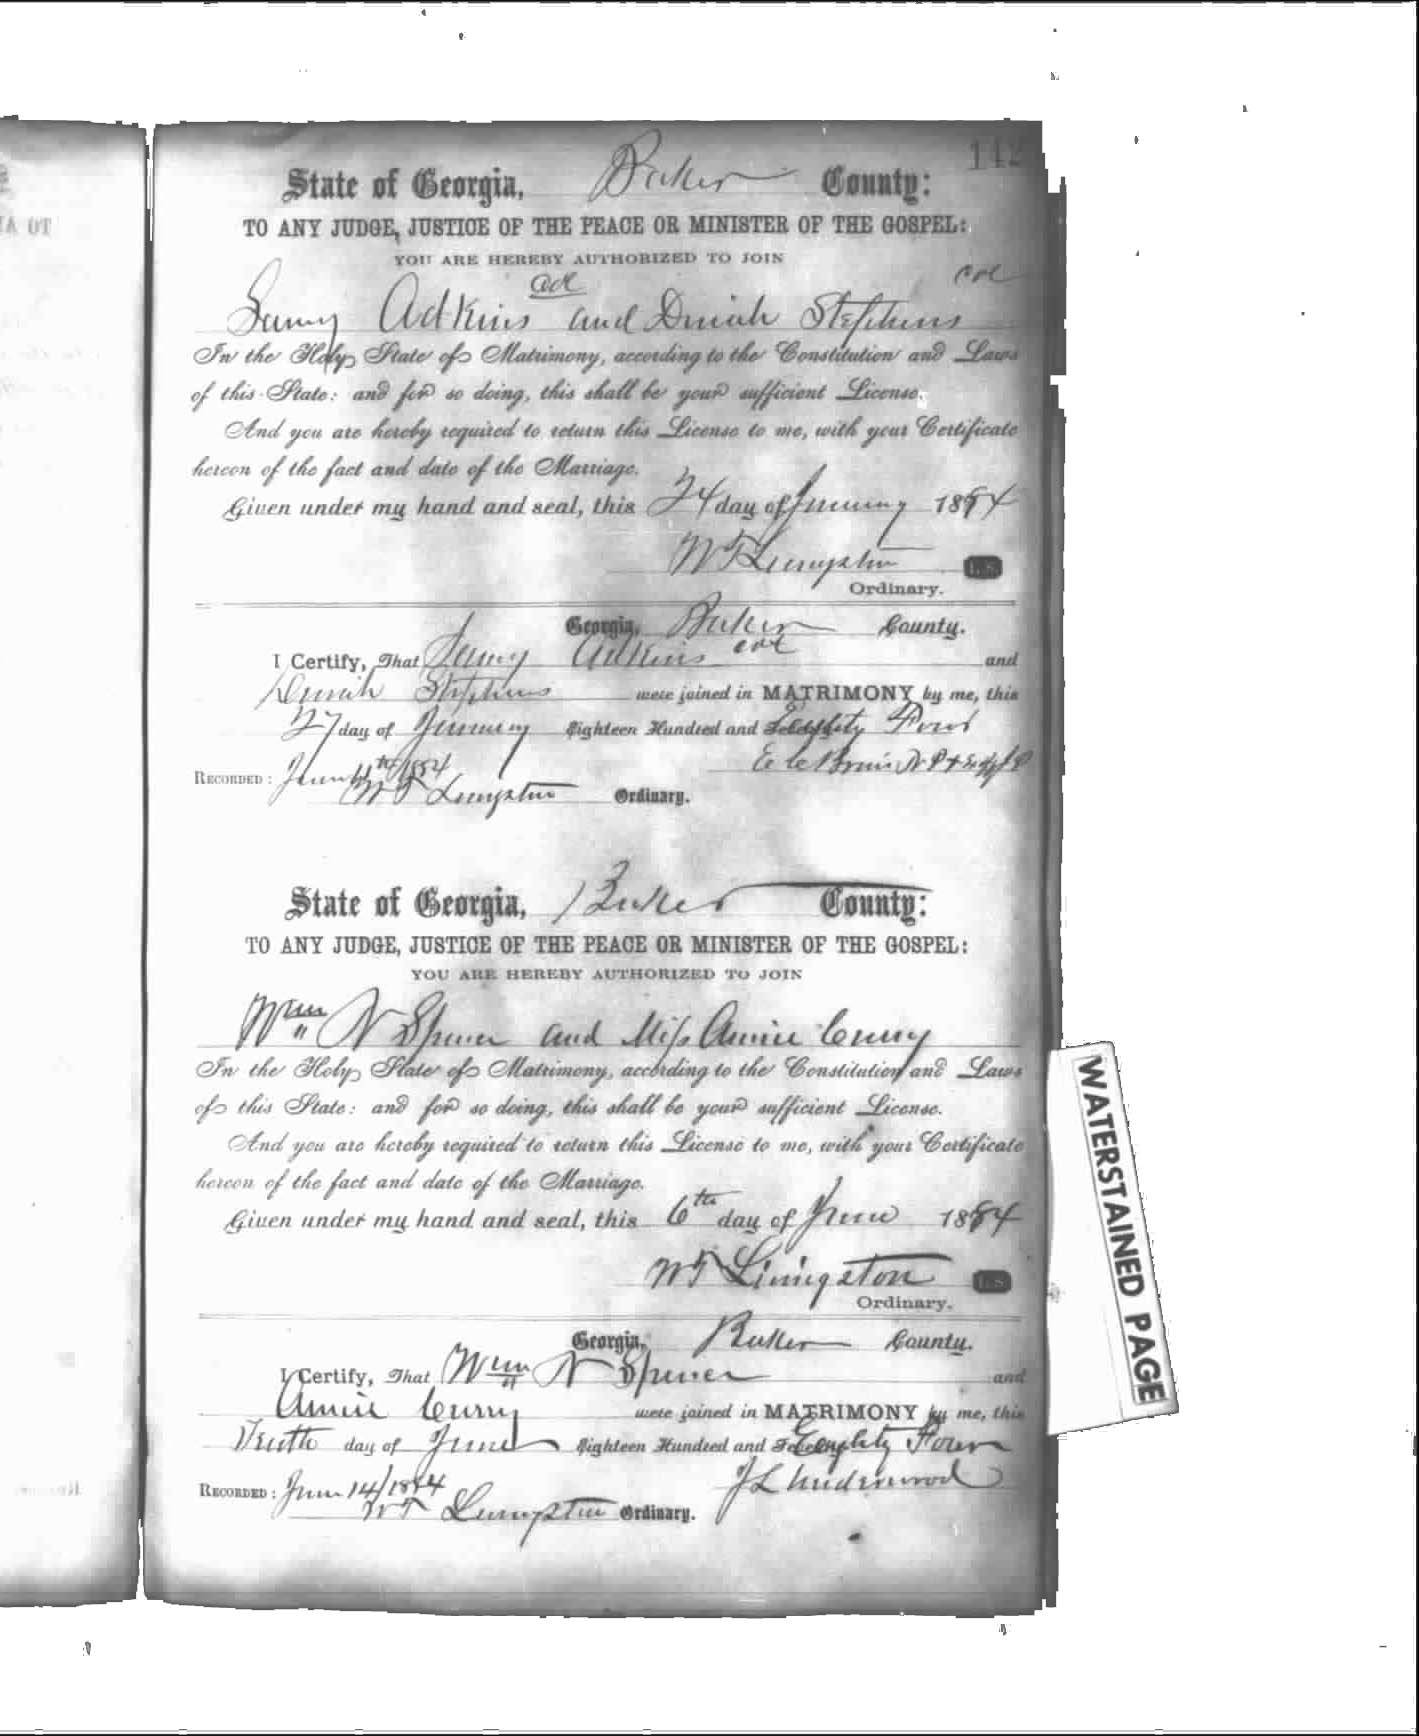 142
State of Georgia, Baker County:
TO ANY JUDGE, JUSTICE OF THE PEACE OR MINISTER OF THE GOSPEL:
YOU ARE HEREBY AUTHORIZED TO JOIN
col col
Adkins and Dinah Stephens
In the Holy State of Matrimony, according to the Constitution and Laws
of this State: and for so doing, this shall be your sufficient License.
And you are hereby required to return this License to me, with your Certificate
hereon of the fact and date of the Marriage.
Given under my hand and seal, this 24 day of January 1884
W T Livingston L. S.
Ordinary.
Georgia, Baker County.
I Certify, That Adkins col and
Dinah Stephens were joined in MATRIMONY by me, this
27 day of January Eighteen Hundred and Eighty Four
RECORDED: 1884
W T Livingston Ordinary.
State of Georgia, Baker County:
TO ANY JUDGE, JUSTICE OF THE PEACE OR MINISTER OF THE GOSPEL:
YOU ARE HEREBY AUTHORIZED TO JOIN
Wm N Spencer and Miss Annie Curry
In the Holy State of Matrimony, according to the Constitution and Laws
of this State: and for so doing, this shall be your sufficient License.
And you are hereby required to return this License to me, with your Certificate
hereon of the fact and date of the Marriage.
Given under my hand and seal, this 6th day of June 1884
W T Livingston L. S.
Ordinary.
Georgia, Baker County.
I Certify, That Wm N Spencer and
Annie Curry were joined in MATRIMONY by me, this
Tenth day of June Eighteen Hundred and Eighty Four
J L Underwood
RECORDED: June 14/1884
W T Livingston Ordinary.
WATERSTAINED PAGE